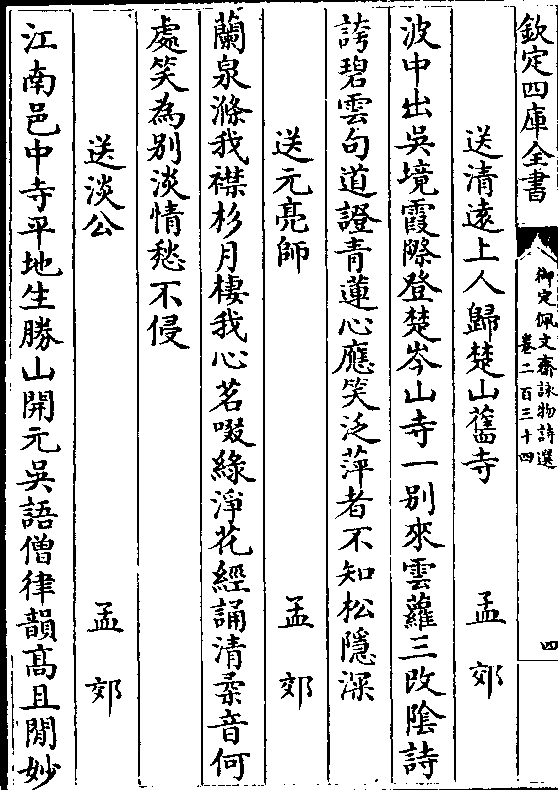 欽定四庫全書
御定佩文齋詠物詩選
卷二百三十四
四
送清遠上人歸楚山舊寺　孟郊
波中出吳境霞際登楚岑山寺一别來雲蘿三改陰詩
誇碧雲句道證青蓮心應笑泛萍者不知松隱深
送元亮師　孟郊
蘭泉滌我襟杉月棲我心茗啜綠淨花經誦清柔音何
處笑為别淡情愁不侵
送淡公　孟郊
江南邑中寺平地生勝山開元吳語僧律韻髙且閒妙